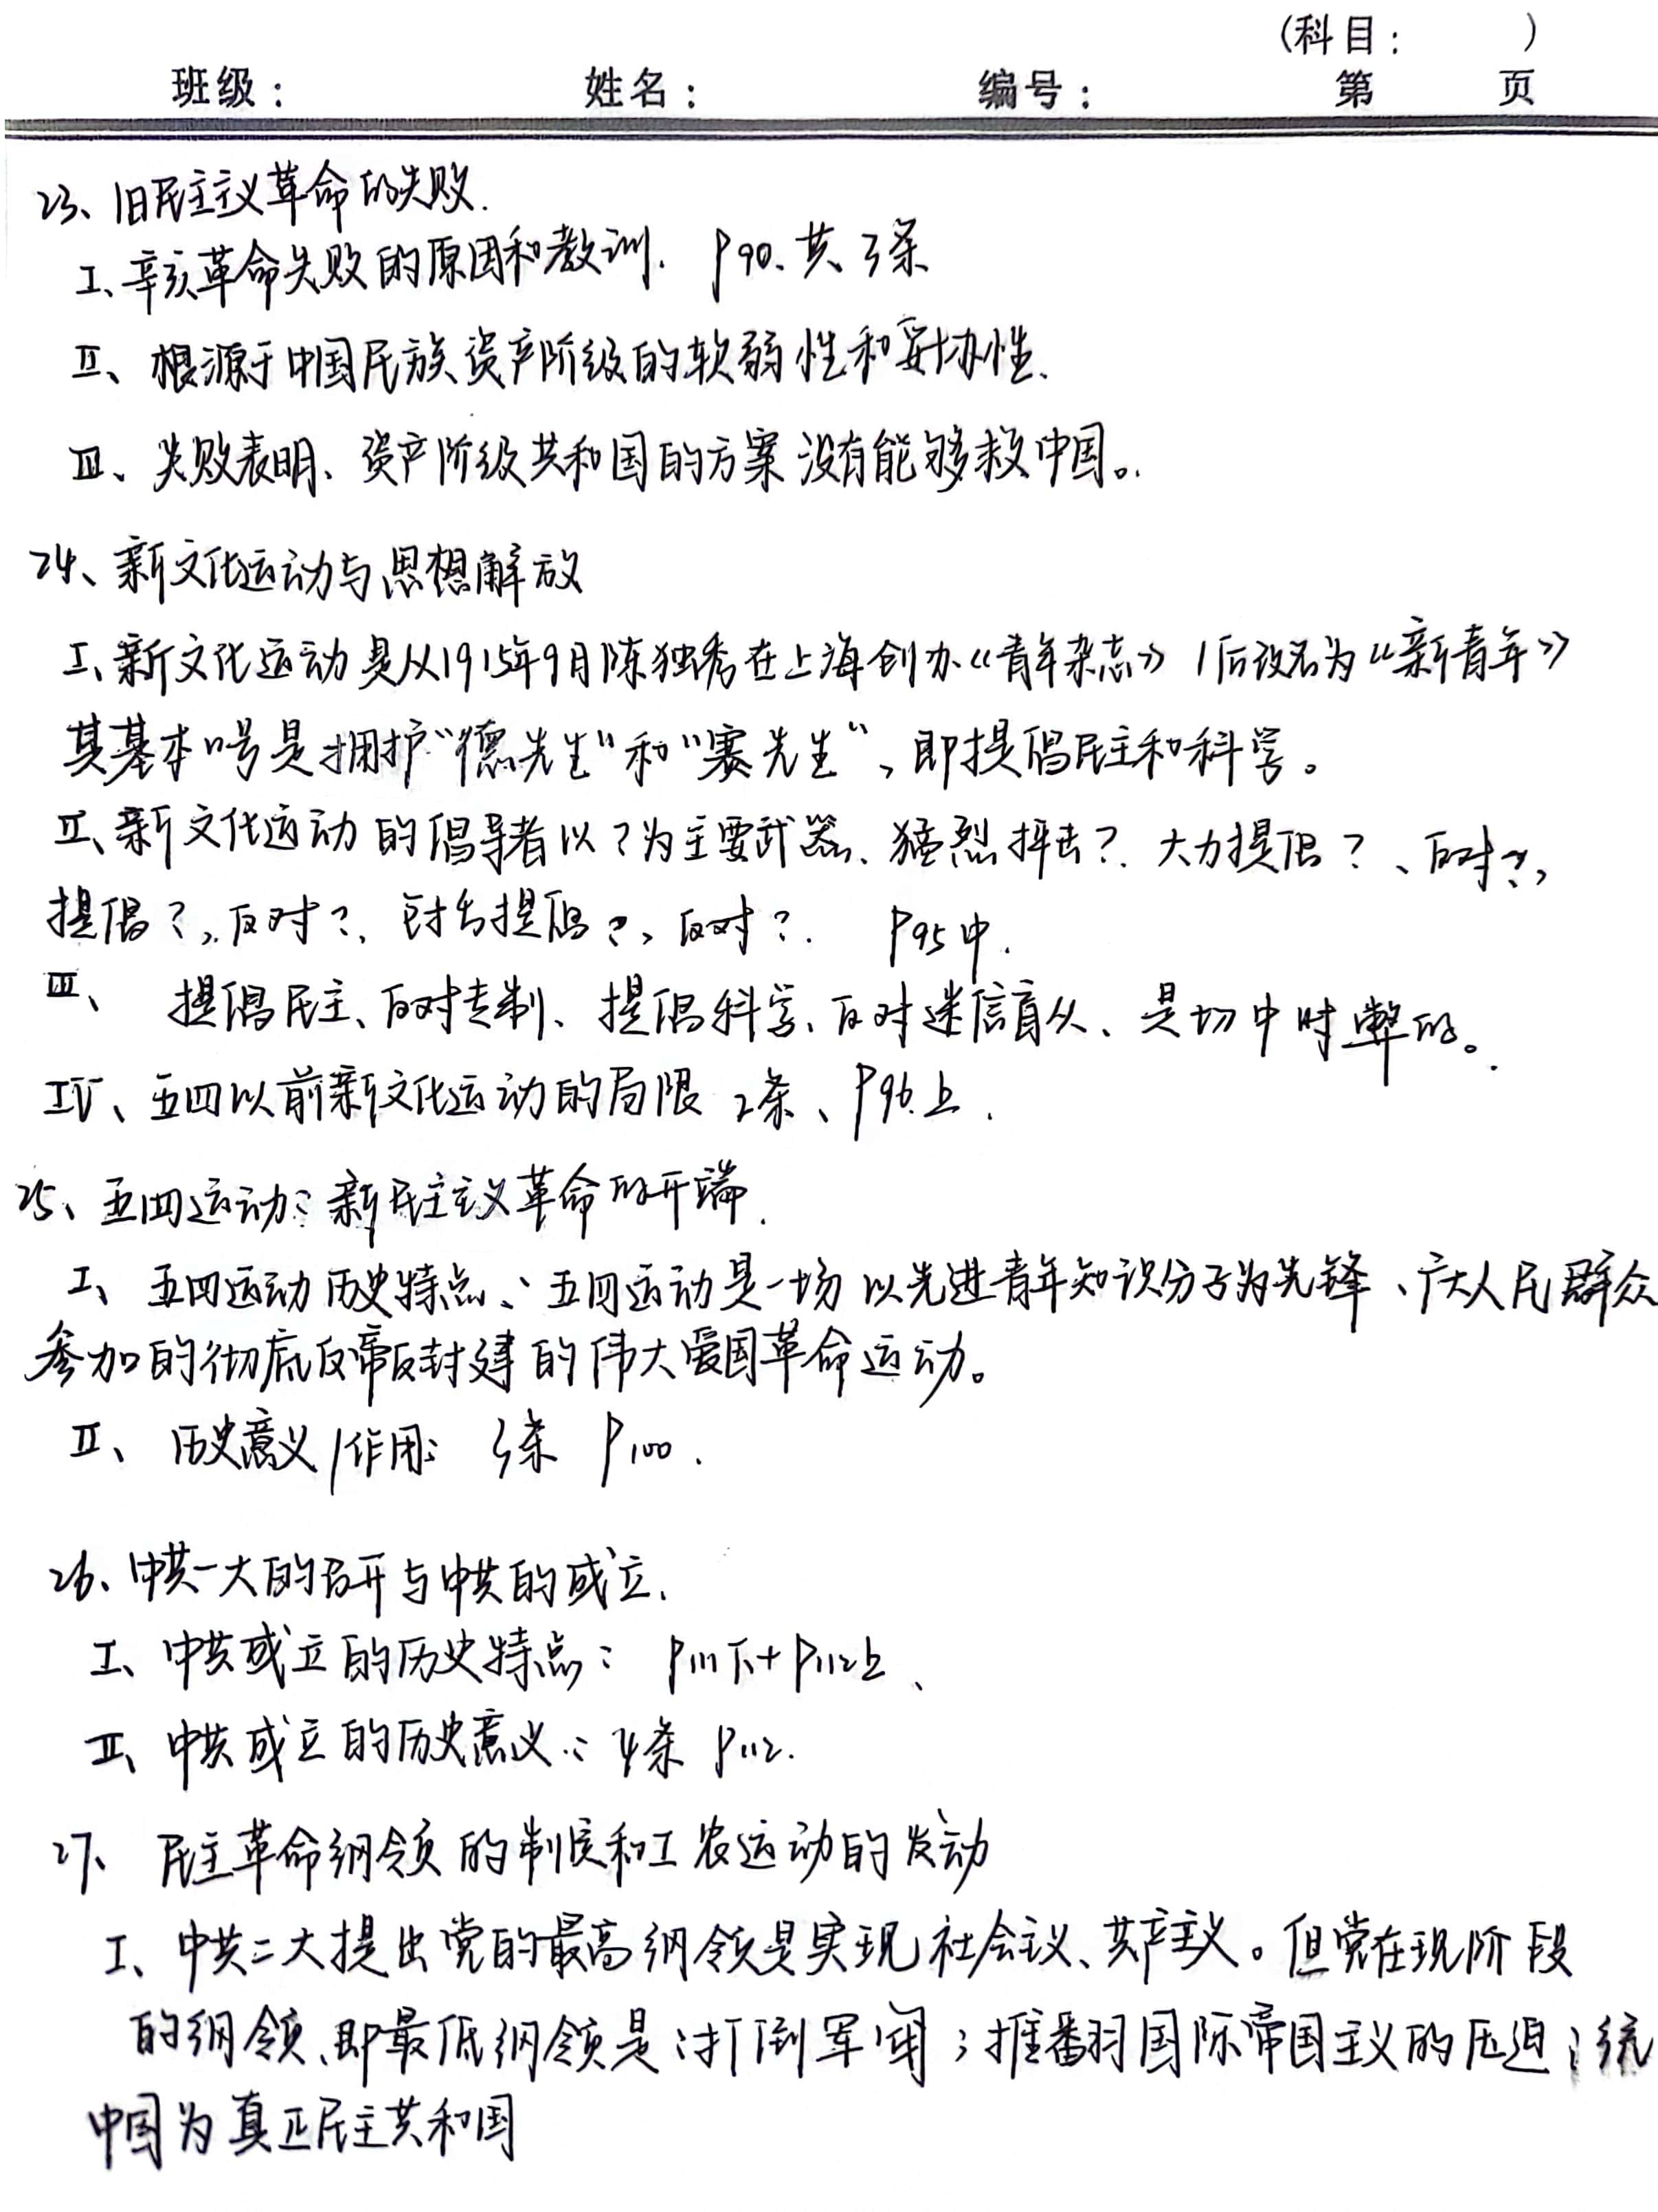 (科目： )
班级： 姓名： 编号： 第 页
23、旧民主主义革命的失败.
I、辛亥革命失败的原因和教训. P90、共3条
II、根源于中国民族资产阶级的软弱性和妥协性.
III、失败表明、资产阶级共和国的方案没有能够救中国。
24、新文化运动与思想解放
I、新文化运动是从1915年9月陈独秀在上海创办《青年杂志》/后改名为《新青年》
其基本口号是拥护"德先生"和"赛先生"，即提倡民主和科学。
II、新文化运动的倡导者以？为主要武器、猛烈抨击？. 大力提倡？、反对？，
提倡？，反对？、提倡？，反对？. P95中.
III、 提倡民主、反对专制、提倡科学、反对迷信盲从、是切中时弊的。
IV、五四以前新文化运动的局限 2条、P96.上.
25、五四运动：新民主主义革命的开端.
I、五四运动历史特点：五四运动是一场以先进青年知识分子为先锋、广大人民群众
参加的彻底反帝反封建的伟大爱国革命运动。
II、历史意义/作用： 3条 P100.
26、中共一大的召开与中共的成立.
I、中共成立的历史特点： P111下+P112上、
II、中共成立的历史意义：4条 P112.
27、民主革命纲领的制定和工农运动的发动
I、中共二大提出党的最高纲领是实现社会主义、共产主义。但党在现阶段
的纲领、即最低纲领是：打倒军阀；推翻国际帝国主义的压迫；统
中国为真正民主共和国